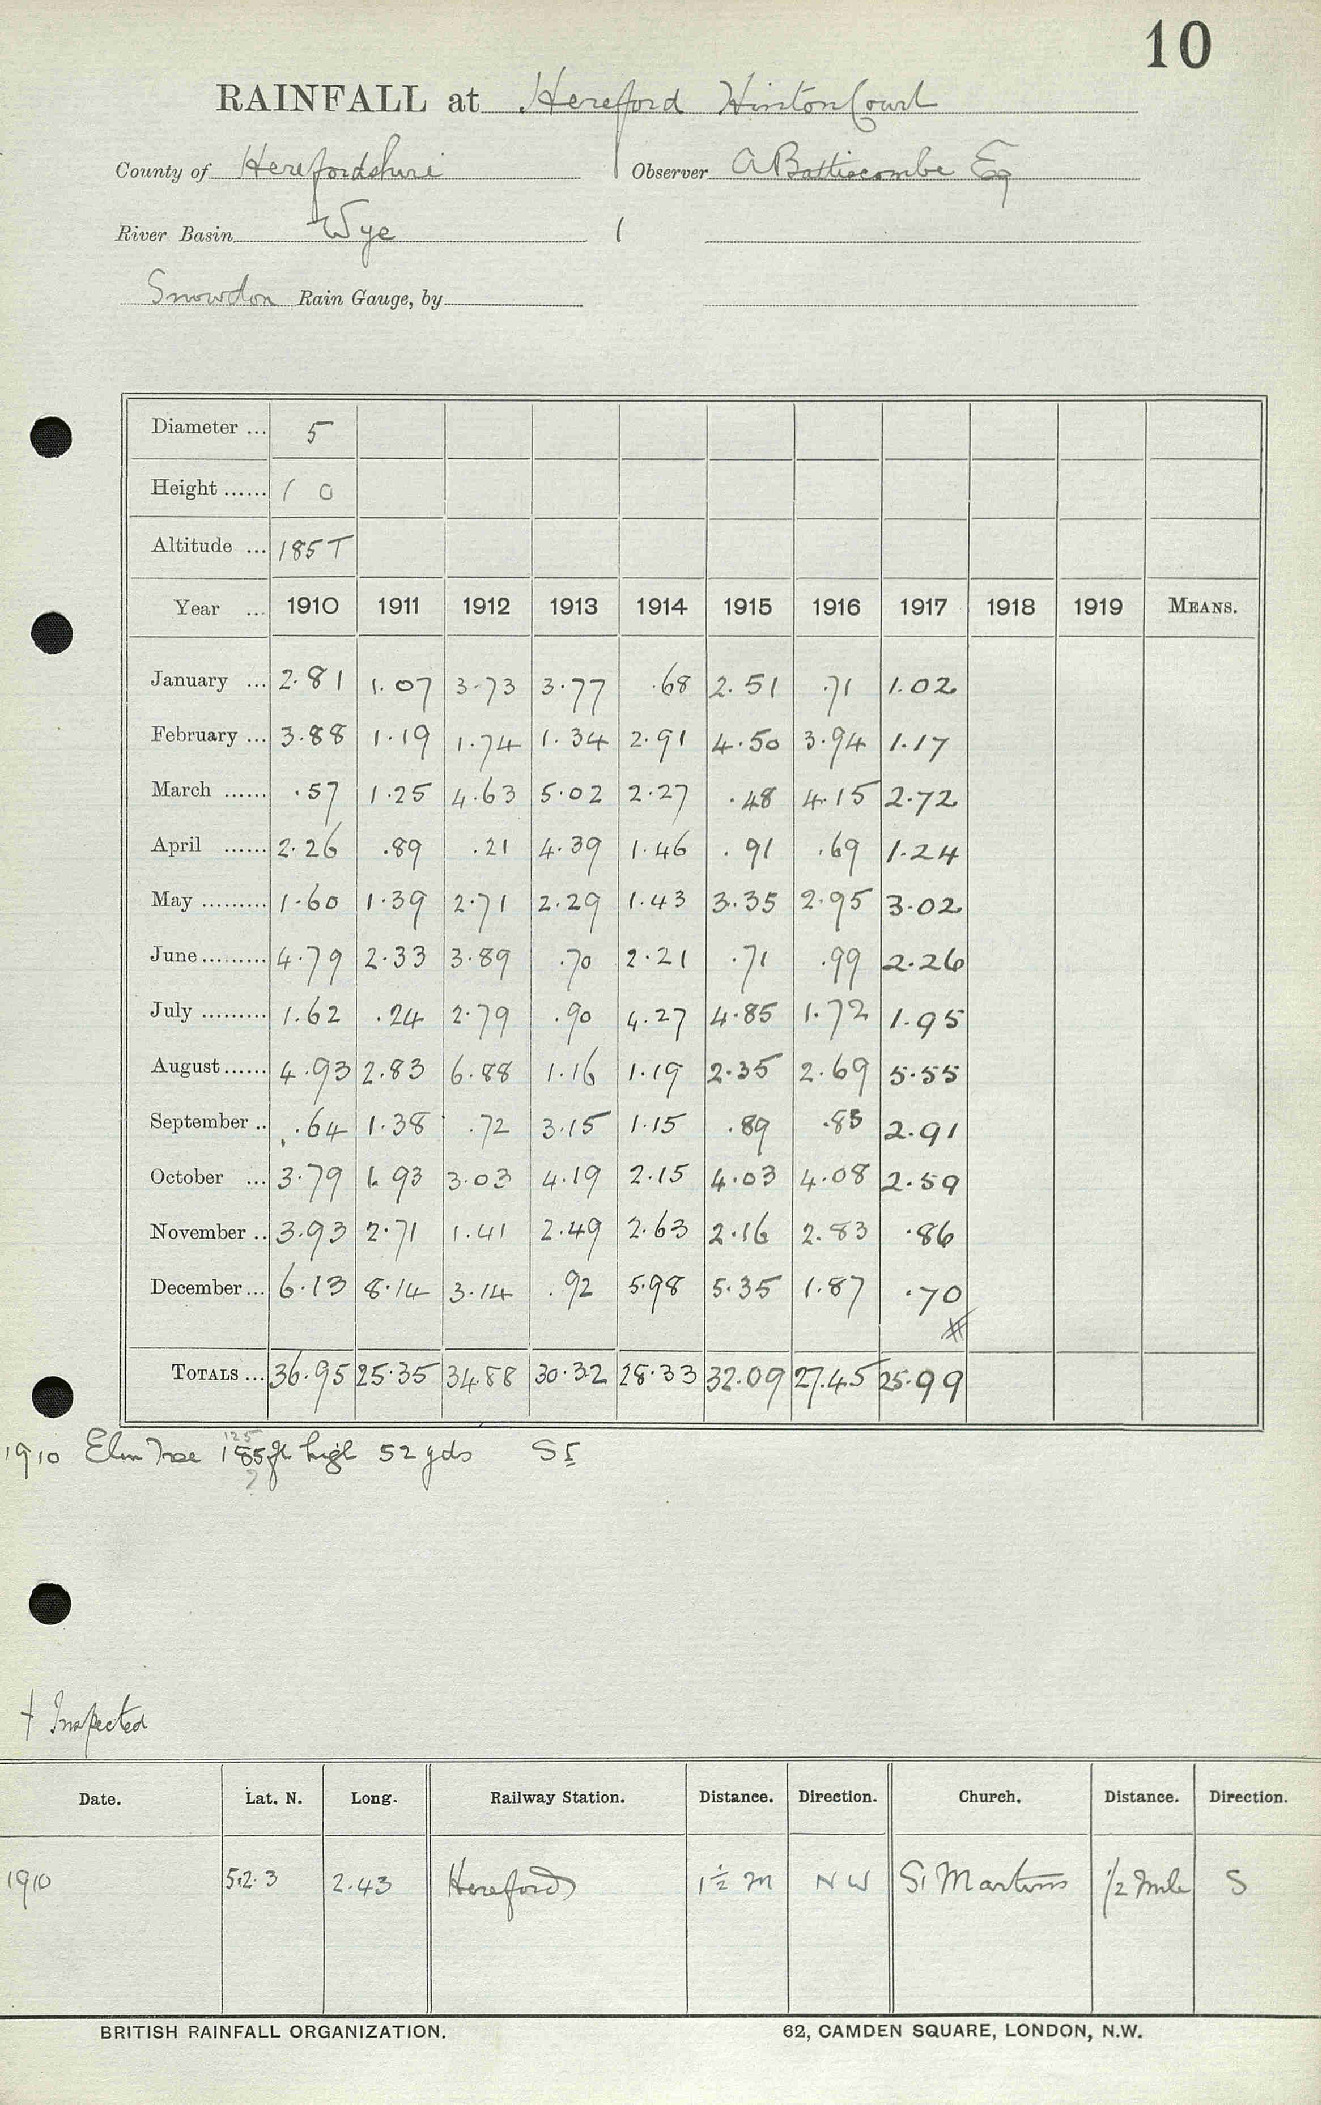 10
RAINFALL at Hereford Hinton Court
County of Herefordshire Observer A Battiscombe Esq
River Basin Wye
Snowdon Rain Gauge, by
Diameter ... 5
Height ...... 1 0
Altitude ... 185 T
Year ... 1910 1911 1912 1913 1914 1915 1916 1917 1918 1919 MEANS.
January ... 2.81 1.07 3.73 3.77 .68 2.51 .71 1.02
February ... 3.88 1.19 1.74 1.34 2.91 4.50 3.94 1.17
March ...... .57 1.25 4.63 5.02 2.27 .48 4.15 2.72
April ...... 2.26 .89 .21 4.39 1.46 .91 .69 1.24
May ......... 1.60 1.39 2.71 2.29 1.43 3.35 2.95 3.02
June ......... 4.79 2.33 3.89 .70 2.21 .71 .99 2.26
July ......... 1.62 .24 2.79 .90 4.27 4.85 1.72 1.95
August ...... 4.93 2.83 6.88 1.16 1.19 2.35 2.69 5.55
September .. .64 1.38 .72 3.15 1.15 .89 .83 2.91
October ... 3.79 1.93 3.03 4.19 2.15 4.03 4.08 2.59
November .. 3.93 2.71 1.41 2.49 2.63 2.16 2.83 .86
December ... 6.13 8.14 3.14 .92 5.98 5.35 1.87 .70
TOTALS ... 36.95 25.35 34.88 30.32 28.33 32.09 27.45 25.99
125
1910 Elm Tree 185 ft high 52 yds SE
?
† Inspected
Date. Lat. N. Long. Railway Station. Distance. Direction. Church. Distance. Direction.
1910 52.3 2.43 Hereford 1½ m NW St Martins 1/2 mile S
BRITISH RAINFALL ORGANIZATION. 62, CAMDEN SQUARE, LONDON, N.W.